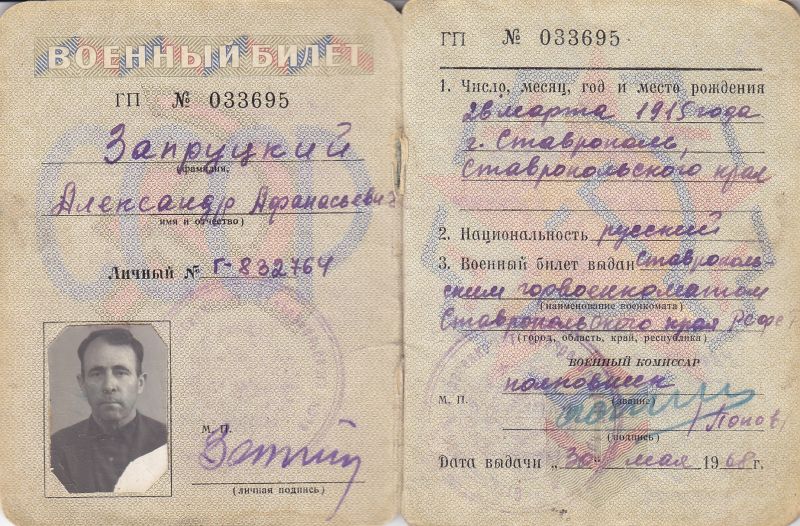 ВОЕННЫЙ БИЛЕТ
ГП № 033695
Запруцкий
(фамилия,
Александр Афанасьевич
имя и отчество)
Личный № Г-832764
М. П.
(личная подпись)
ГП № 033695
1. Число, месяц, год и место рождения
26 марта 1915 года
г. Ставрополь,
Ставропольского края
2. Национальность русский
3. Военный билет выдан Ставрополь-
ским горвоенкоматом
(наименование военкомата)
Ставропольского края РСФСР
(город, область, край, республика)
ВОЕННЫЙ КОМИССАР
полковник
М. П. (звание)
/Попов/
(подпись)
Дата выдачи „30" мая 1968 г.